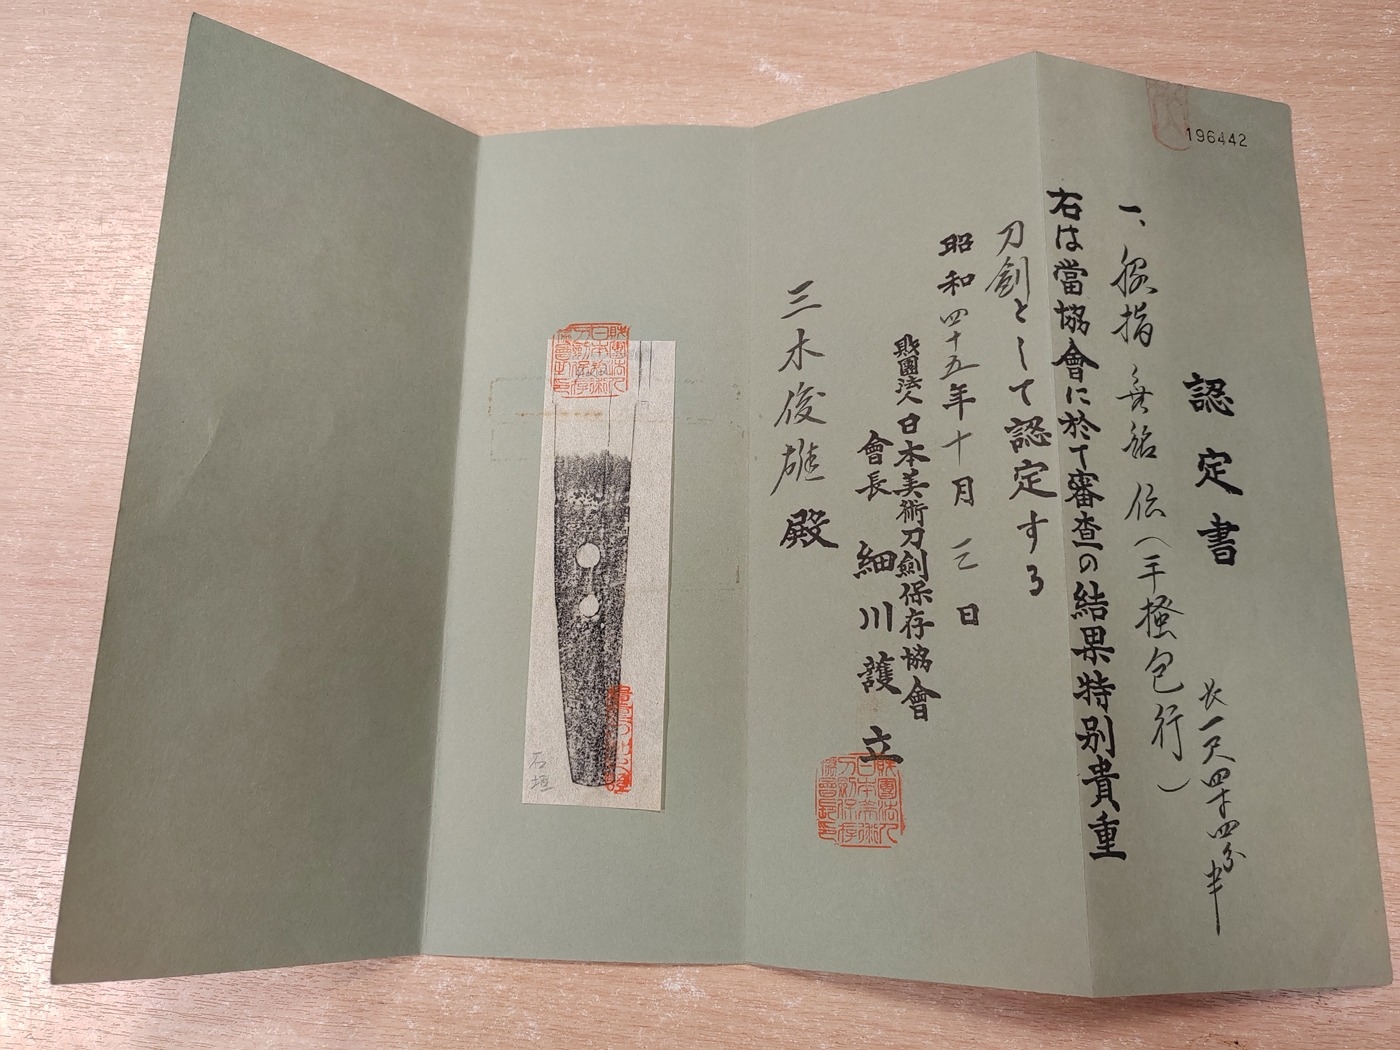 196442
認定書
一、脇指 無銘 伝(手掻包行)
長一尺四寸四分半
右は當協會に於て審査の結果特別貴重
刀劍として認定する
昭和四十五年十月三日
財團法人日本美術刀劍保存協會
會長 細川護立
三木俊雄殿
石垣